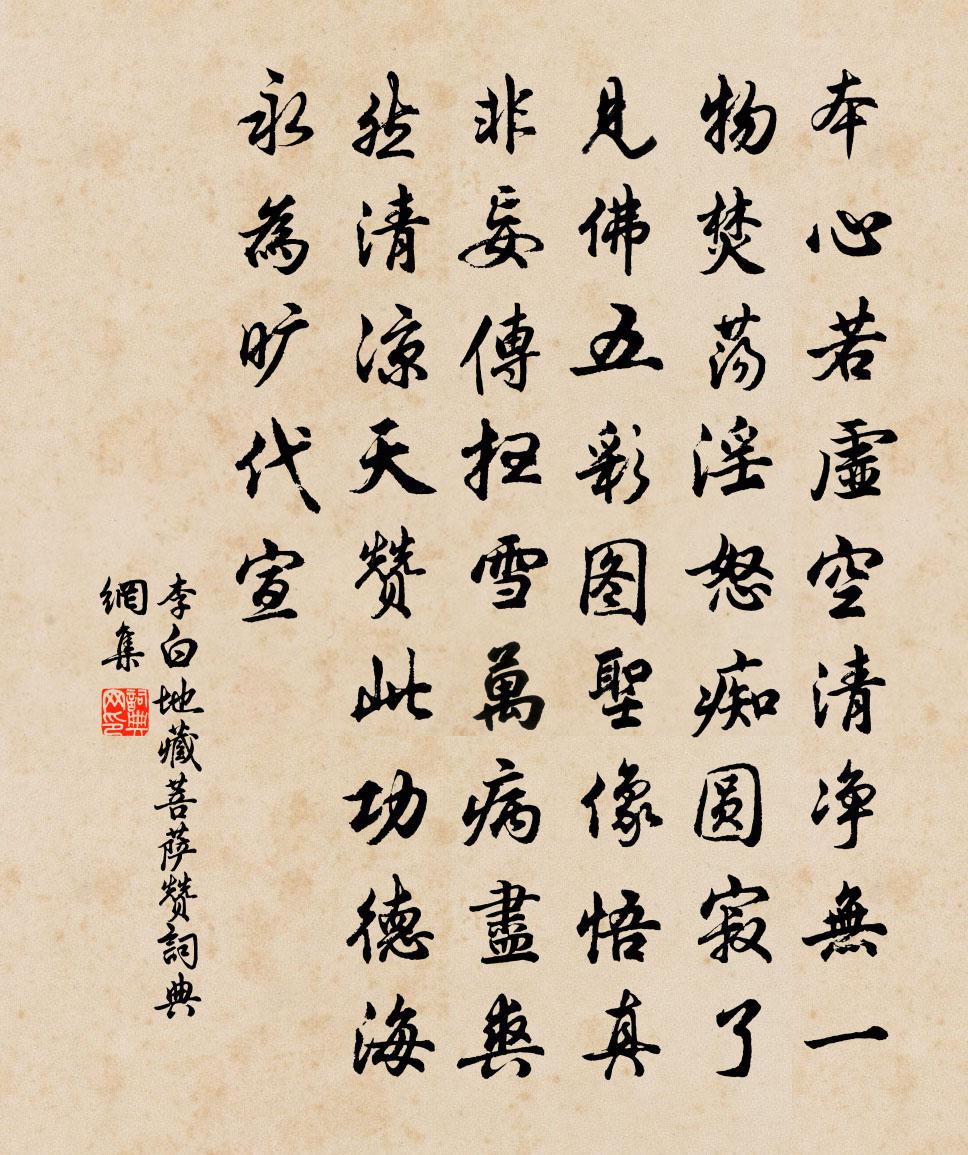 本心若虛空清净無一
物焚荡淫怒痴圆寂了
見佛五彩图聖像悟真
非妄傳扫雪萬病盡爽
然清凉天赞此功德海
永為旷代宣
李白地藏菩萨赞詞典
網集
詞典
网印